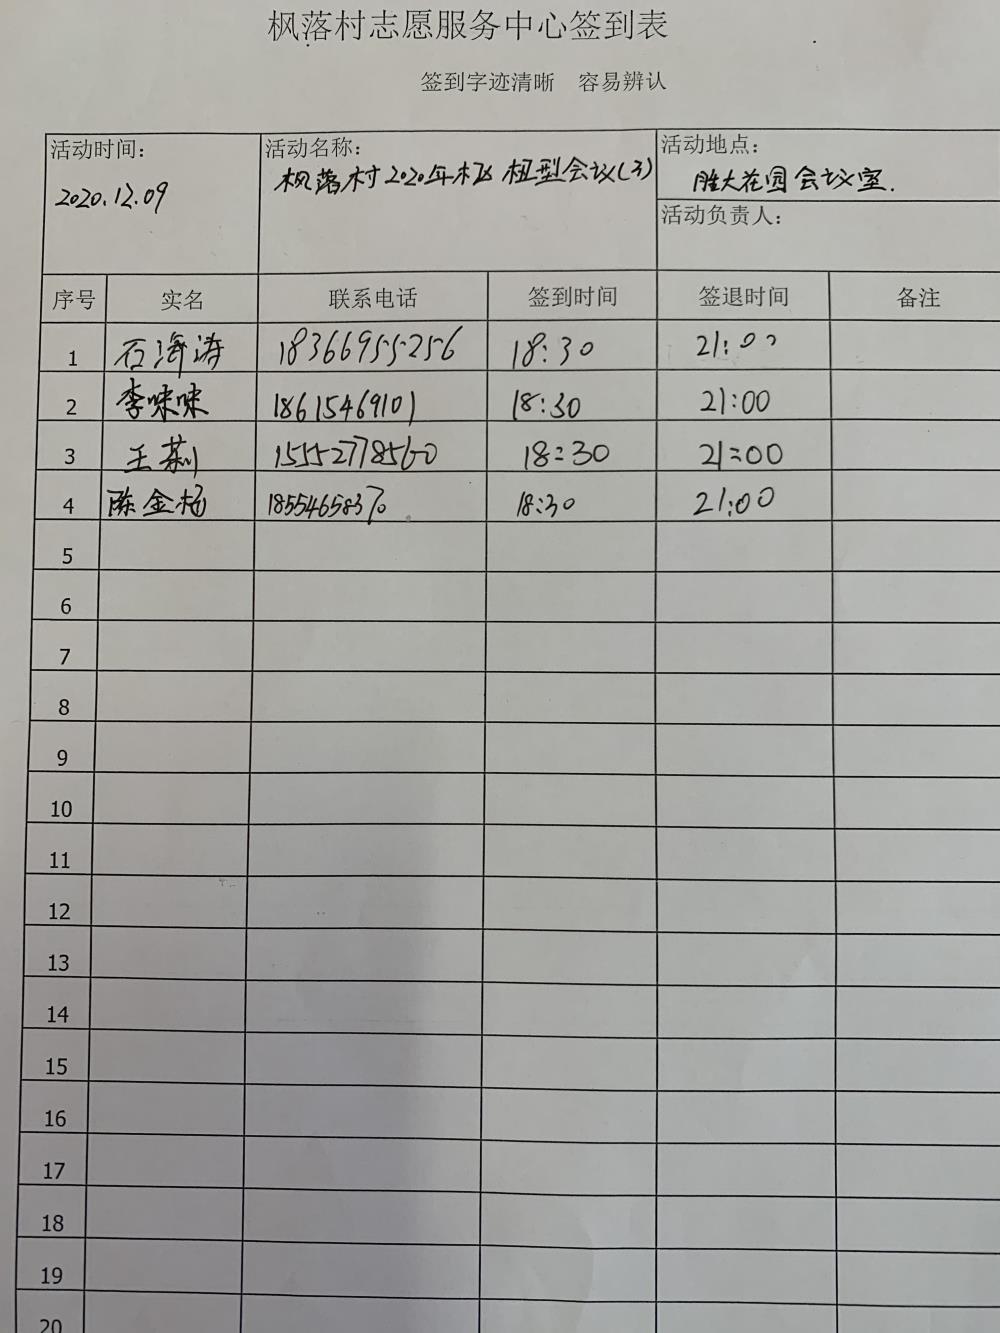 枫落村志愿服务中心签到表
签到字迹清晰 容易辨认
活动时间:
2020.12.09
活动名称:
枫落村2020年 会议(3)
活动地点:
胜大花园会议室.
活动负责人:
序号 实名 联系电话 签到时间 签退时间 备注
1 石海涛 18366955256 18:30 21:00
2 李味味 18615469101 18:30 21:00
3 王莉 15552778560 18:30 21:00
4 陈金杨 18:30 21:00
5
6
7
8
9
10
11
12
13
14
15
16
17
18
19
20